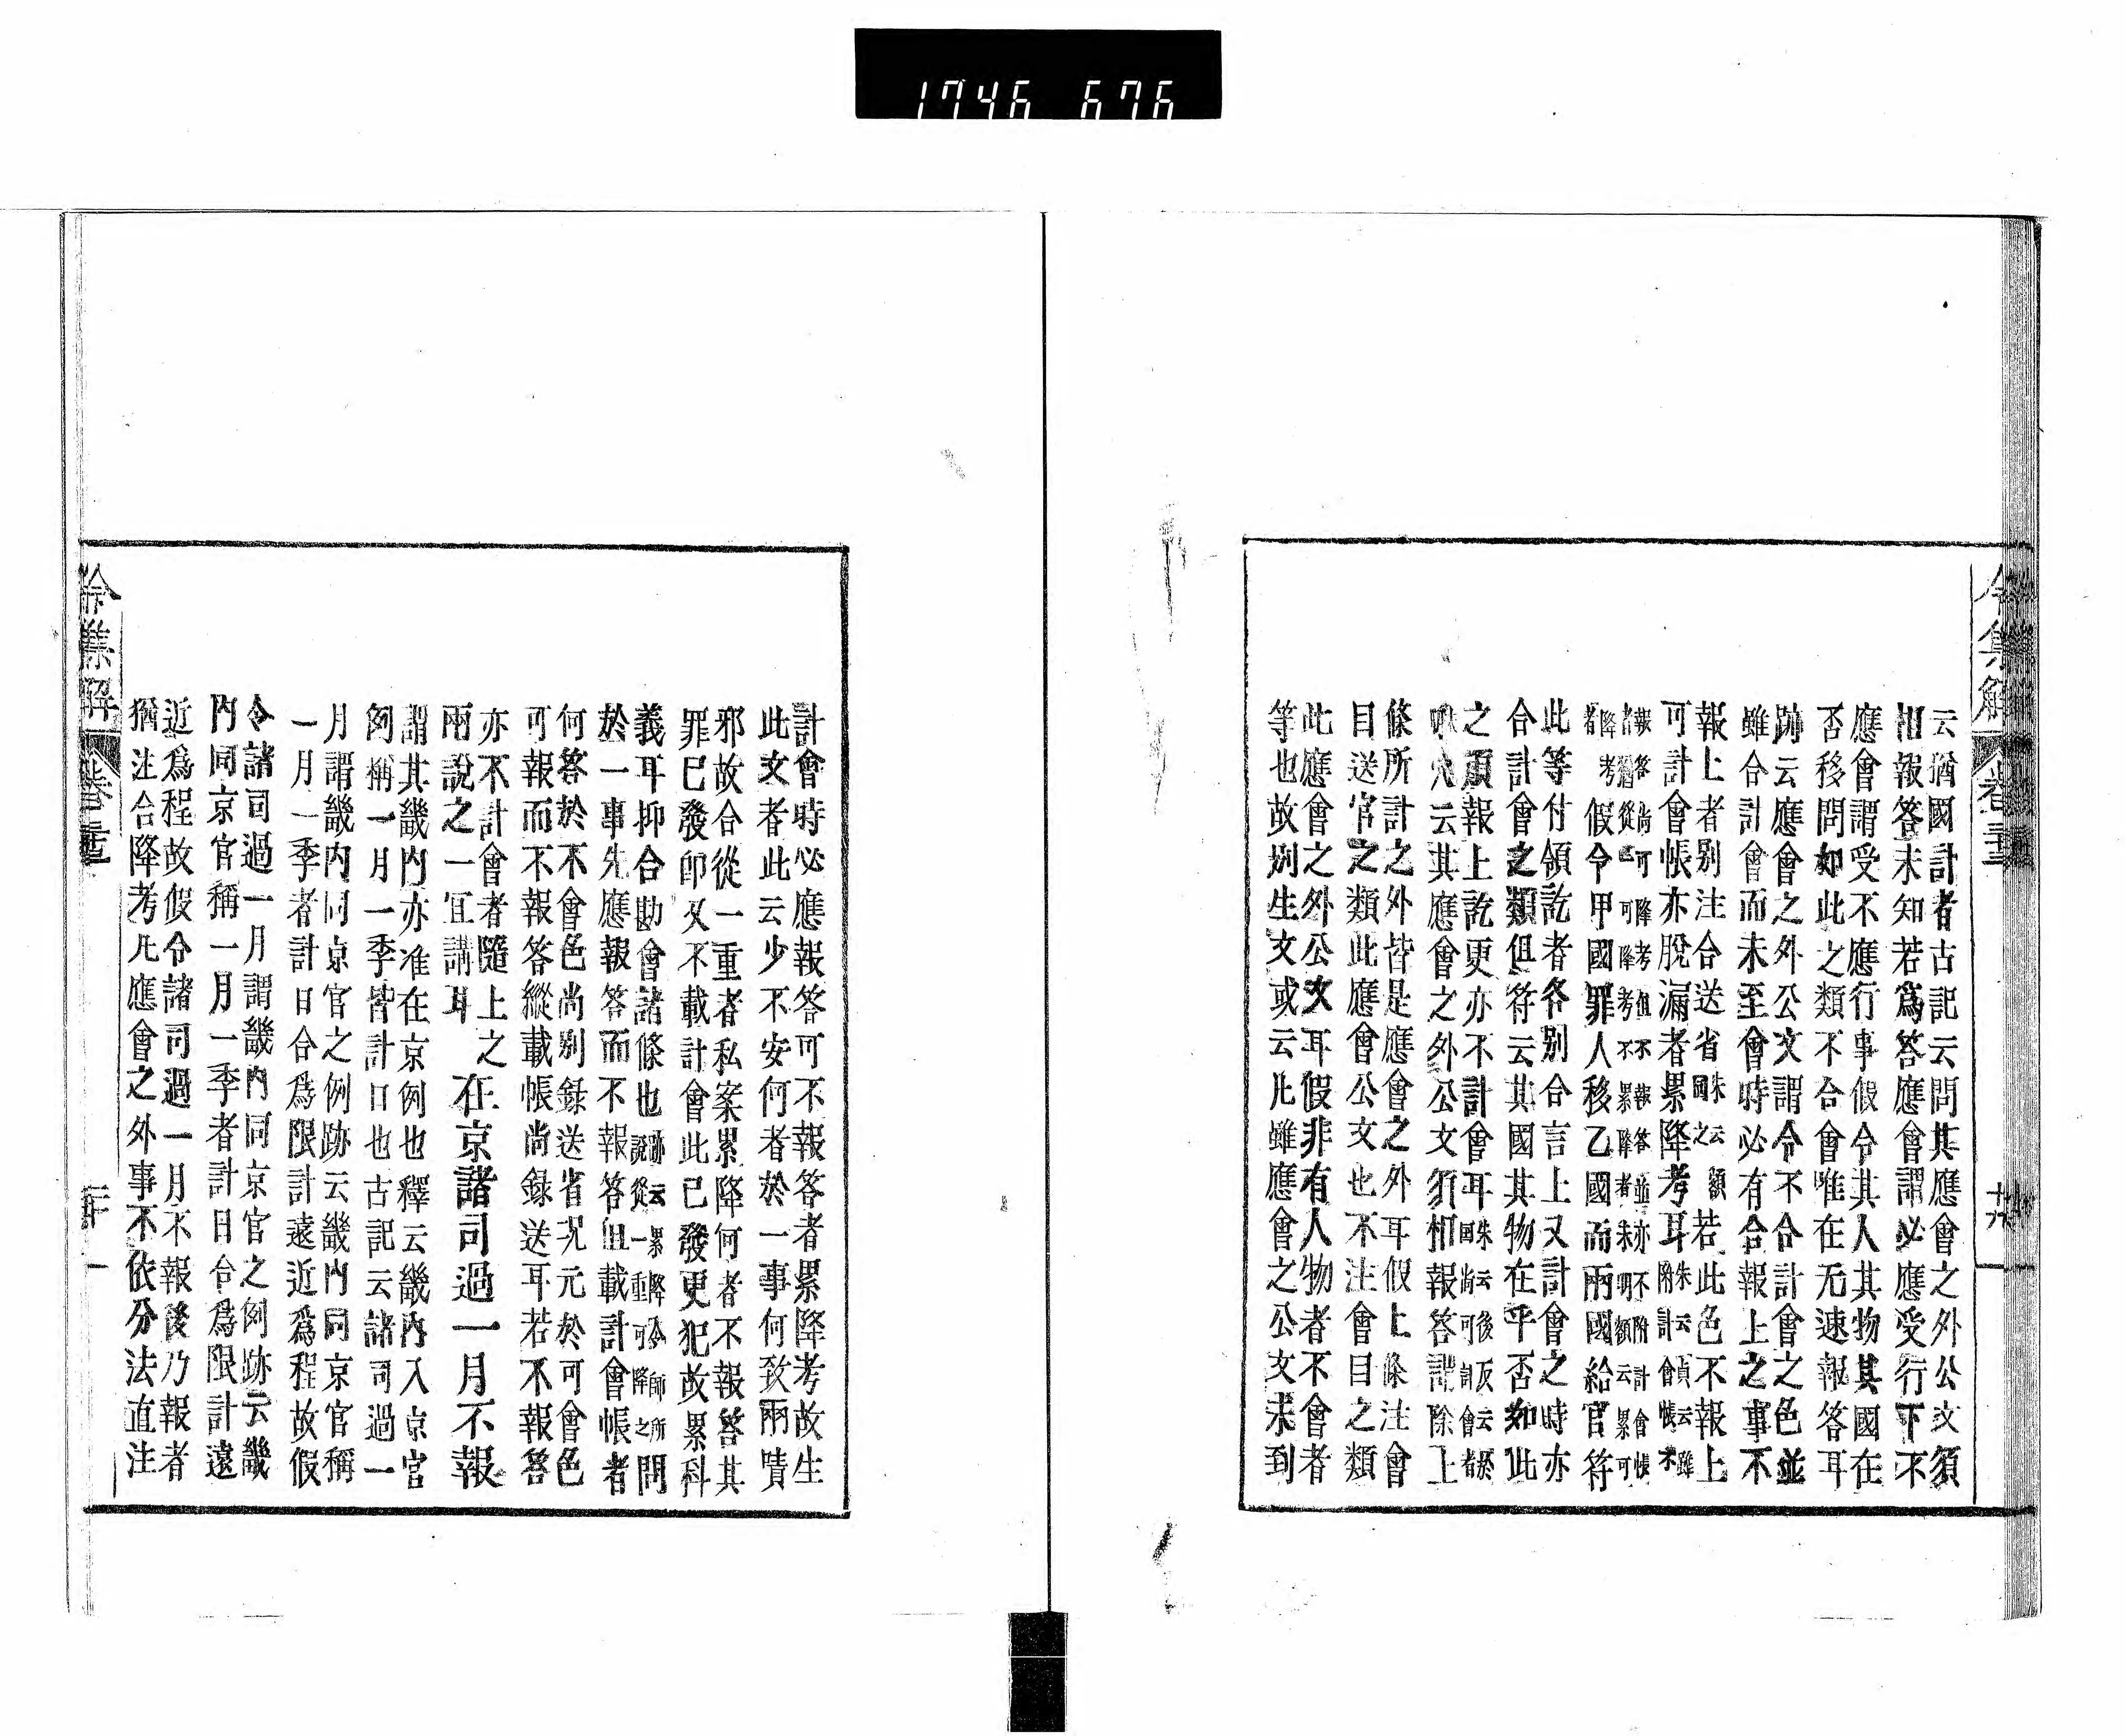 1746 676
令集解 卷
云猶國計者古記云問其應會之外公文須
相報答未知若爲答應會謂必應受行下不
應會謂受不應行事假令其人其物其國在
否移問如此之類不合會唯在无速報答耳
跡云應會之外公文謂令不合計會之色並
雖合計會而未至會時必有合報上之事不
報上者別注合送省朱云額國之若此色不報上
可計會帳亦脫漏者累降考耳朱云貞云雖附計會帳不
報答尚可降考但不報答並亦不附計會帳
降考假令甲國罪人移乙國而兩國給官符
此等付領訖者各別合言上又計會之時亦
合計會之類但符云其國其物在乎否如此
之須報上訖更亦不計會耳
穴云其應會之外公文須相報答謂除上
條所計之外皆是應會之外耳假上條注會
目送官之類此應會公文也不注會目之類
此應會之外公文耳假非有人物者不會者
等也故別生文或云凡雖應會之公文未到
計會時必應報答可不報答者累降考故生
此文者此云少不安何者於一事何致兩責
邪故合從一重者私案累降何者不報答其
罪已發卽又不載計會此已發更犯故累科
義耳抑合勘會諸條也跡云累降令師所問說從一重可降之
於一事先應報答而不報答但載計會帳者
何答於不會色尚別錄送省况元於可會色
可報而不報答縱載帳尚錄送耳若不報答
亦不計會者隨上之
兩說之一宜講耳
在京諸司過一月不報
謂其畿內亦准在京例也釋云畿內入京官
例稱一月一季皆計日也古記云諸司過一
月謂畿內同京官之例跡云畿內同京官稱
一月一季者計日合爲限計遠近爲程故假
令諸司過一月謂畿內同京官之例跡云畿
內同京官稱一月一季者計日合爲限計遠
近爲程故假令諸司過一月不報後乃報者
猶注合降考凡應會之外事不依分法直注
令集解 卷